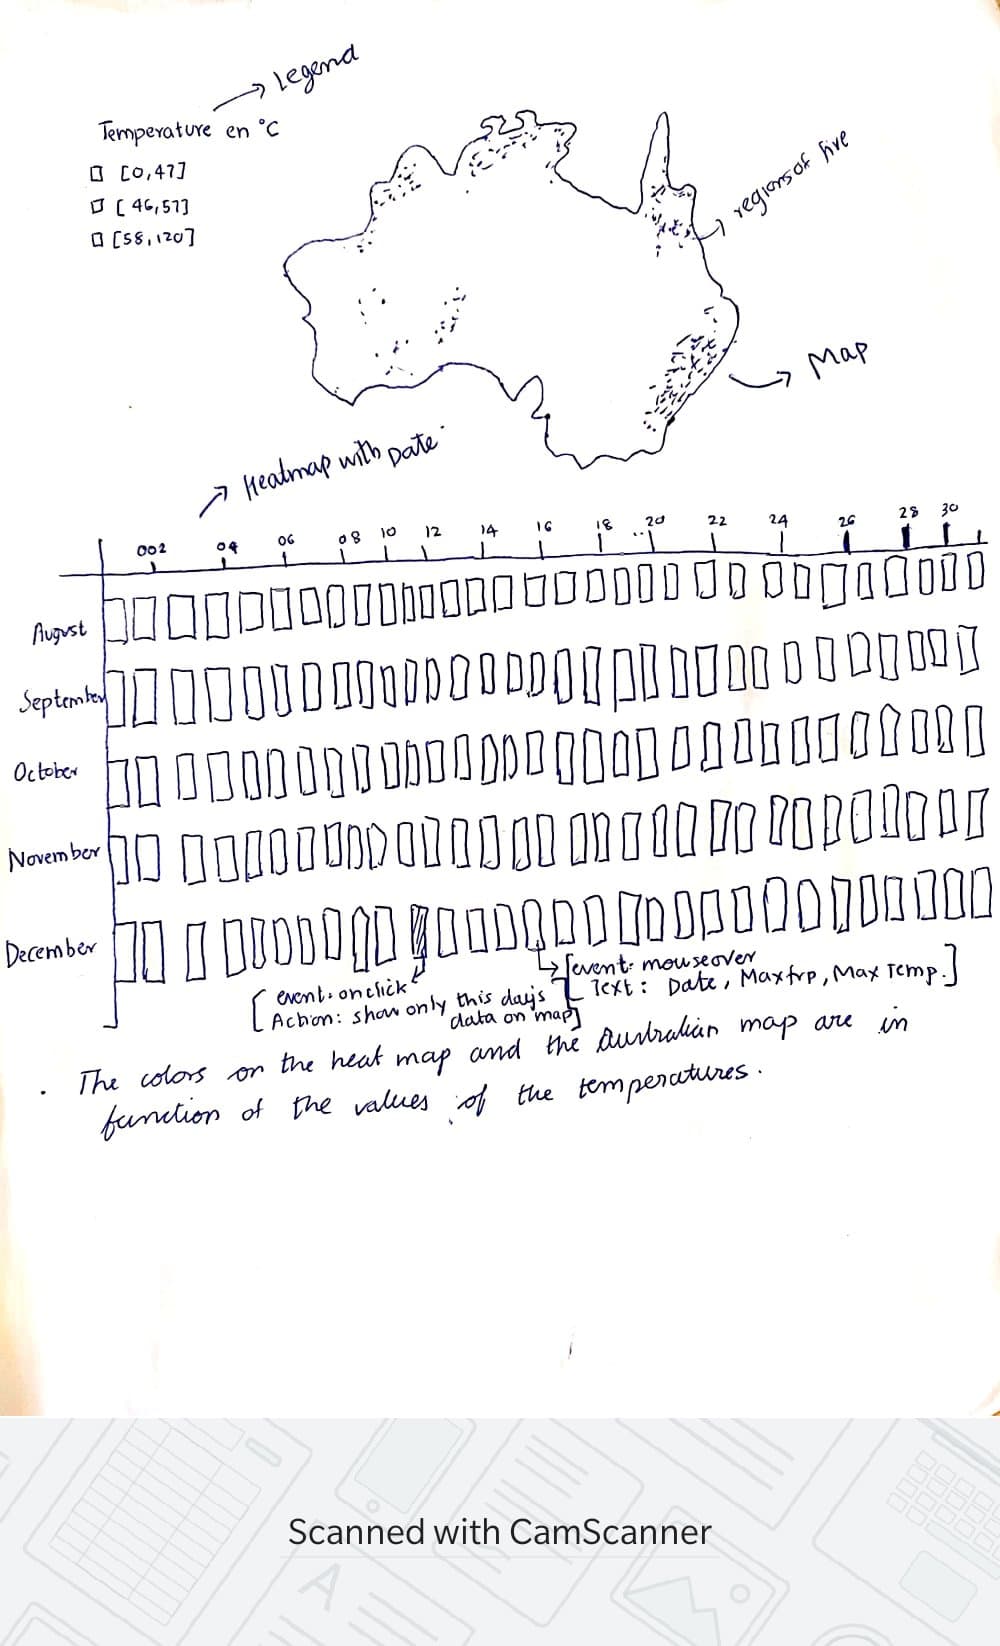 Legend
Temperature en °C
[0,47]
[46,57]
[58,120]
regions of five
Map
Heatmap with Date
002 04 06 08 10 12 14 16 18 .. 20 22 24 26 28 30
August
September
October
November
December
[event: onclick
Action: show only this day's
data on map]
[event: mouseover
Text: Date, Max frp, Max Temp.]
. The colors on the heat map and the Australian map are in
function of the values of the temperatures.
Scanned with CamScanner